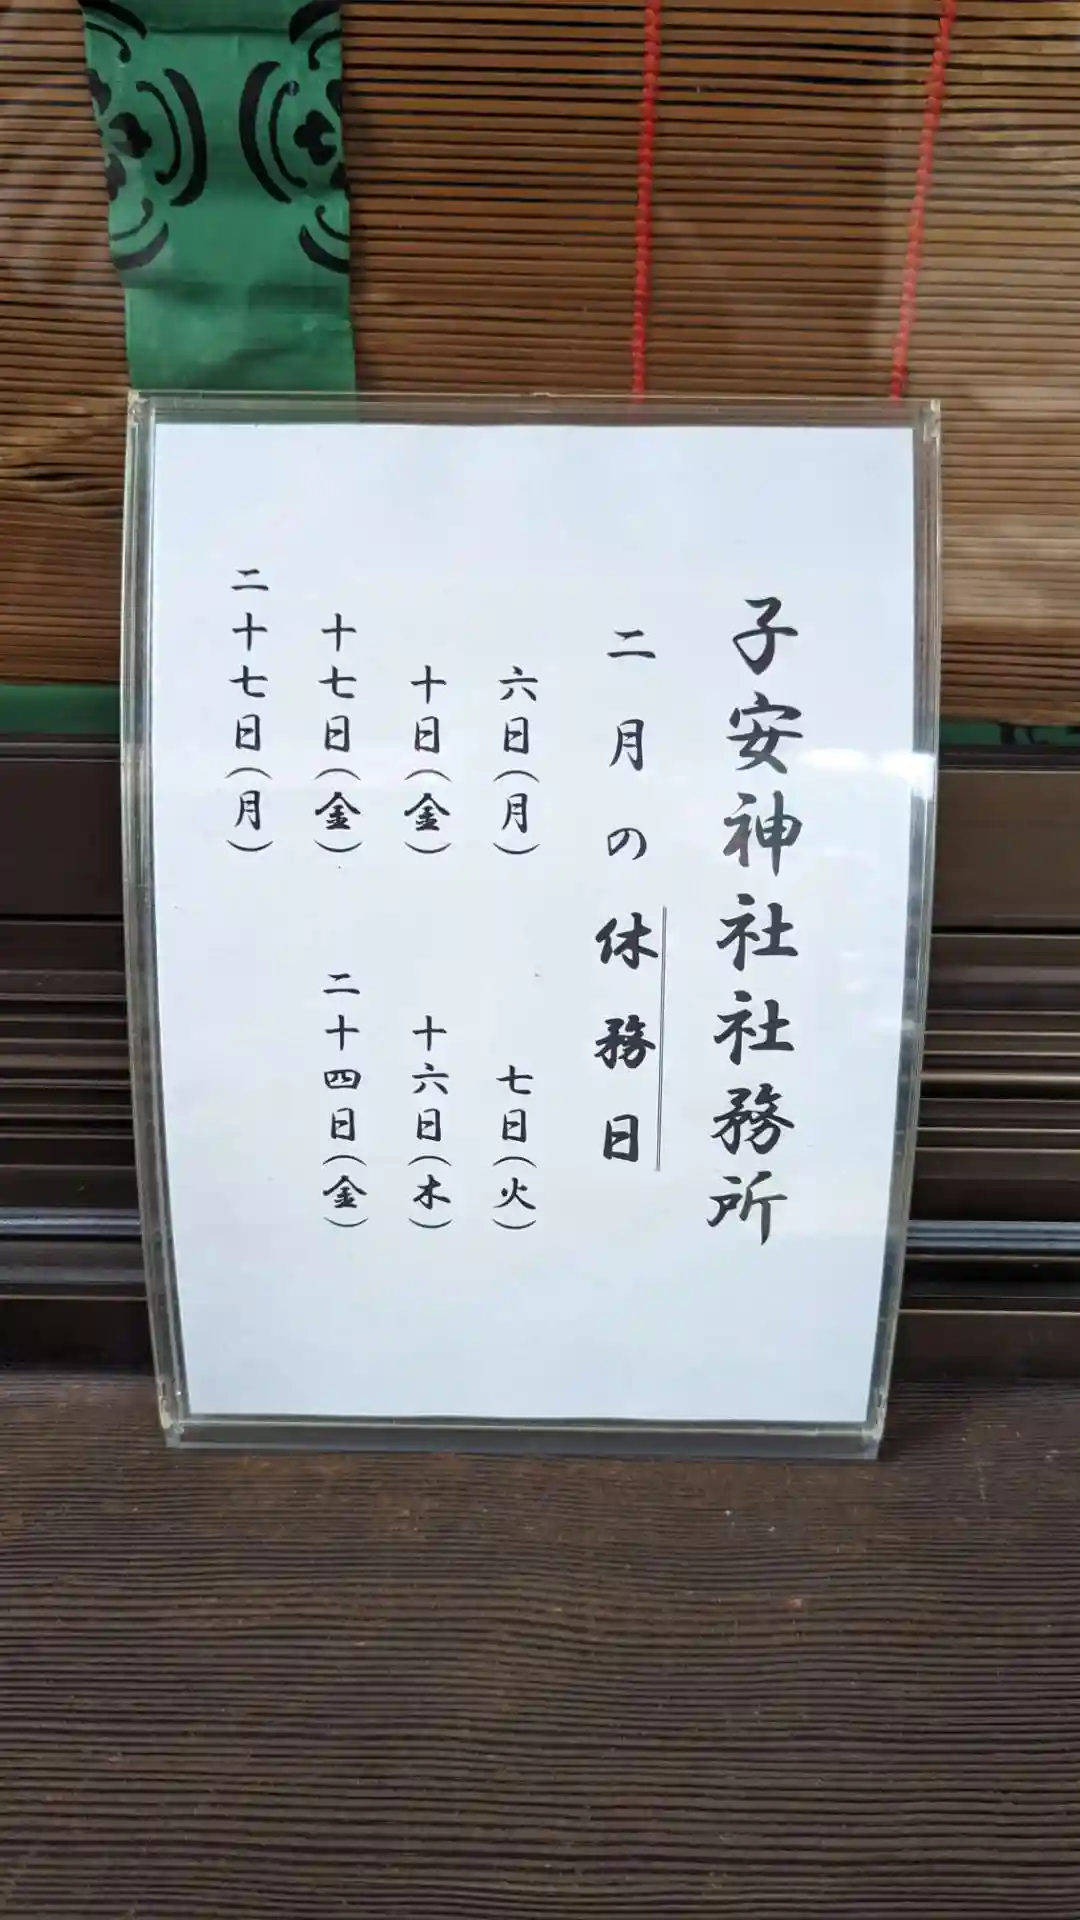 子安神社社務所
二月の休務日
六日（月）　七日（火）
十日（金）　十六日（木）
十七日（金）　二十四日（金）
二十七日（月）